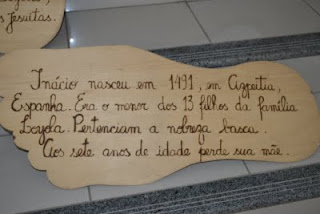 s Jesuítas.
Inácio nasceu em 1491, em Azpeitia,
Espanha. Era o menor dos 13 filhos da família
Loyola. Pertenciam a nobreza basca.
Aos sete anos de idade perde sua mãe.